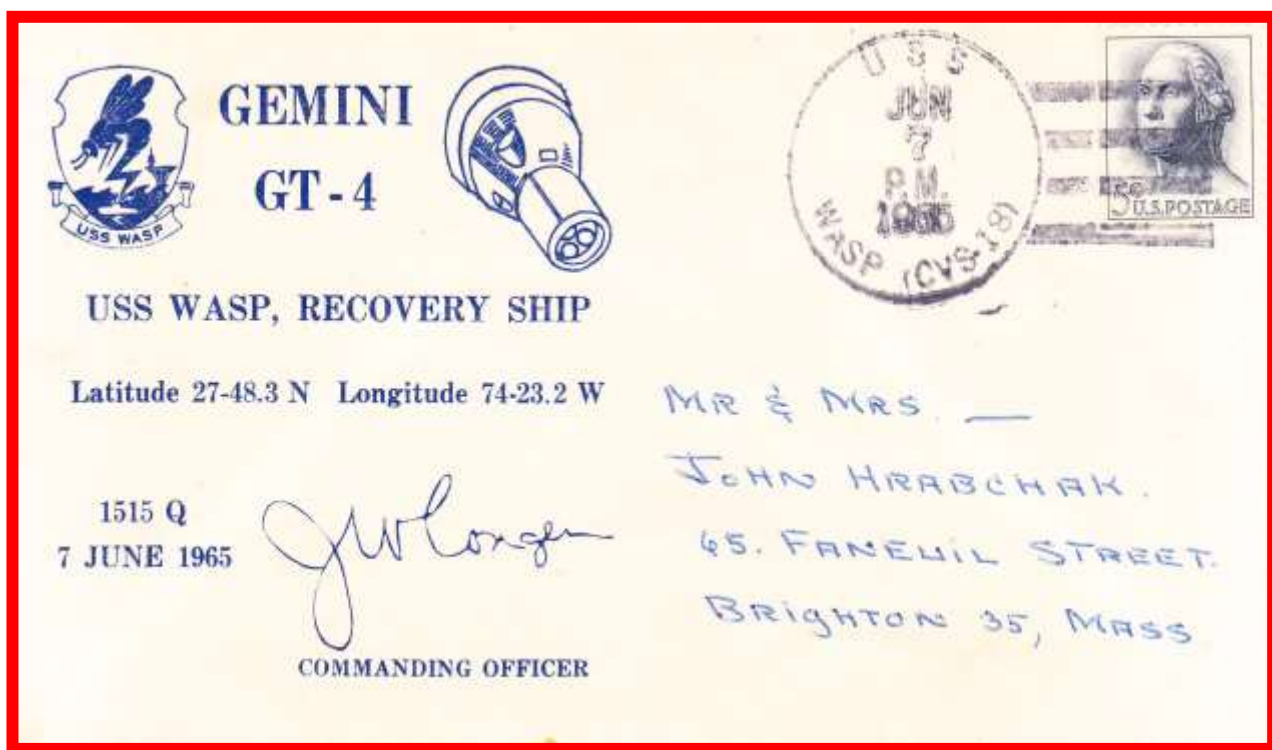 USS WASP
GEMINI
GT-4
USS WASP, RECOVERY SHIP
Latitude 27-48.3 N Longitude 74-23.2 W
1515 Q
7 JUNE 1965
COMMANDING OFFICER
USS
JUN
7
P.M.
1965
WASP (CVS-18)
5¢ U.S.POSTAGE
MR & MRS. —
JOHN HRABCHAK.
65. FANEUIL STREET.
BRIGHTON 35, MASS